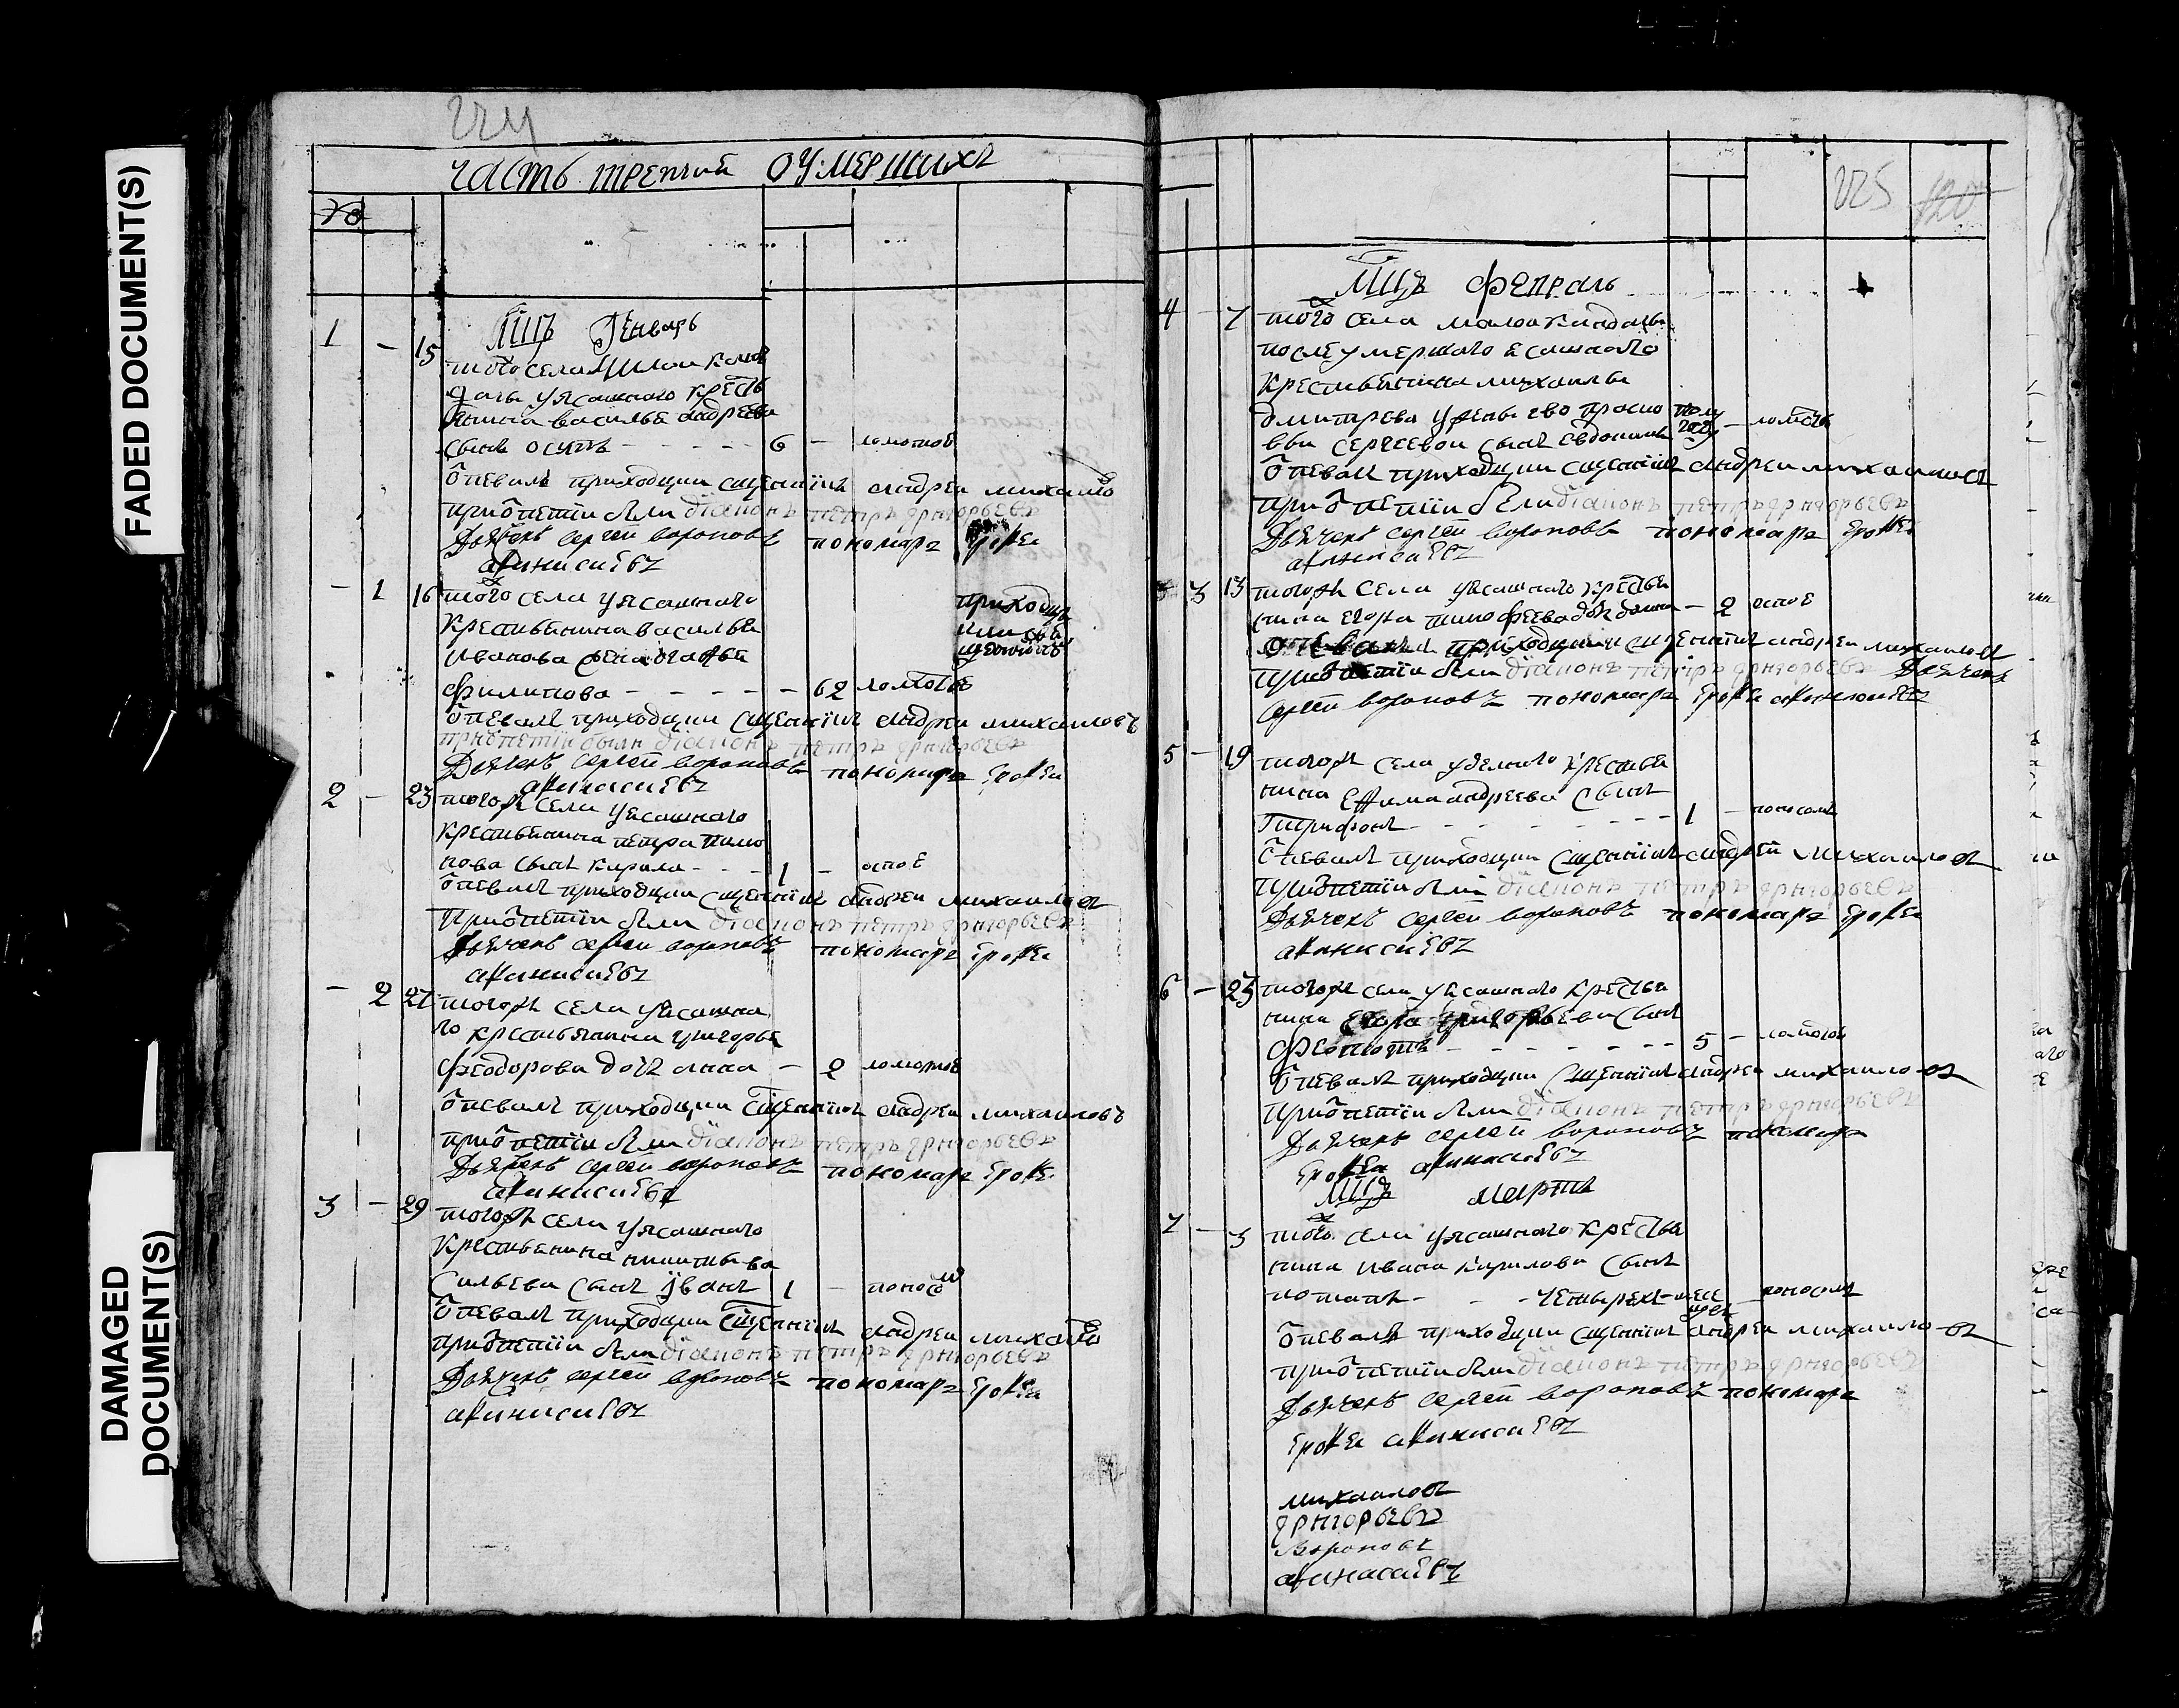 FADED DOCUMENT(S)
DAMAGED
DOCUMENT(S)
224
часть третия оумершихъ
№
Мцъ Генварь
1 - 15 того села Малой Канд
алы уясашного кресть
янина василья андреева
сынъ осипъ - - - - 6 - ломотою
ѿпевалъ приходцки сщеннїкъ андреи михаило
приѿпетїи были дїаконъ петръ григорьевъ
Дьячекъ сергей вороновъ пономарь Ерофеи
афанасиевъ
- 1 16 того села уясашного
крестьянина василья
Иванова
филипова - - - - - 62 ломотою
приходцк
ѿпевалъ приходцки сщеннїкъ андреи михаиловъ
приѿпетїи были дїаконъ петръ григорьевъ
Дьячекъ сергей вороновъ пономарь Ерофеи
афанасиевъ
2 - 23 тогожъ села уясашного
крестьянина петра
нова сынъ кирила - - - 1 - оспоЕ
ѿпевалъ приходцки сщеннїкъ андреи михаиловъ
приѿпетїи были дїаконъ петръ григорьевъ
Дьячекъ сергеи вороновъ пономарь Ерофеи
афанасиевъ
- 2 27 тогожъ села уясашна
го крестьянина григорья
феодорова дочь анна - 2 ломотоЕ
ѿпевалъ приходцки сщеннїкъ андреи михаиловъ
приѿпетїи были дїаконъ петръ григорьевъ
Дьячекъ сергеи вороновъ пономарь Ерофеи
афанасиевъ
3 - 29 тогожъ села уясашного
крестьянина никиты ва
сильева сынъ Иванъ 1 - поносо
ѿпевалъ приходцки сщеннїкъ андреи михаило
приѿпетїи были дїаконъ петръ григорьевъ
Дьячекъ сергеи вороновъ пономарь Ерофеи
афанасиевъ
225 120
Мцъ Февраль
4 - 7 того села малой кандалы
после умершаго ясашного
крестьянина михаилы
дмитрева ужены ево праско
вьи сергеевой сынъ евдокимъ полу году - ломотоЕ
ѿпевалъ приходцки сщеннїкъ андреи михаиловъ
приѿпетїи были дїаконъ петръ григорьевъ
Дьячекъ сергей вороновъ пономарь Ерофеи
афанасиевъ
3 13 тогожъ села уясашного крестья
нина егора тимофеева дочь - 2 оспоЕ
ѿпевалъ приходцки сщеннїкъ андреи михаиловъ
приѿпетїи были дїаконъ петръ григорьевъ Дьячекъ
сергей вороновъ пономарь Ерофеи афанасиевъ
5 - 19 тогожъ села уделного крестья
нина Ефима андреева сынъ
Трифонъ - - - - - - - 1 - поносомъ
ѿпевалъ приходцки сщеннїкъ андрей михаиловъ
приѿпетїи были дїаконъ петръ григорьевъ
Дьячекъ сергей вороновъ пономарь Ерофеи
афанасиевъ
6 - 23 тогожъ села уясашного крестья
нина егора григорьева сынъ
- - - - - - 5 - ломотою
ѿпевалъ приходцки сщеннїкъ андреи михаиловъ
приѿпетїи были дїаконъ петръ григорьевъ
Дьячекъ сергей вороновъ пономарь
Ерофеи афанасиевъ
Мцъ мартъ
7 - 3 того села уясашного крестья
нина ивана кирилова сынъ
потапъ - - - четырехъ месе - поносомъ
ѿпевалъ приходцки сщеннїкъ андреи михаиловъ
приѿпетїи были дїаконъ петръ григорьевъ
Дьячекъ сергей вороновъ пономарь
Ерофеи афанасиевъ
михаиловъ
григорьевъ
Вороновъ
афанасаЕвъ